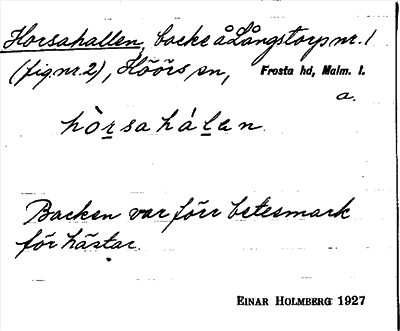 Horsahallen, backe å Långstorp nr. 1
(fig. nr. 2), Höörs sn, Frosta hd, Malm. l.
a.
hòrsahálen.
Backen var förr betesmark
för hästar.
EINAR HOLMBERG 1927